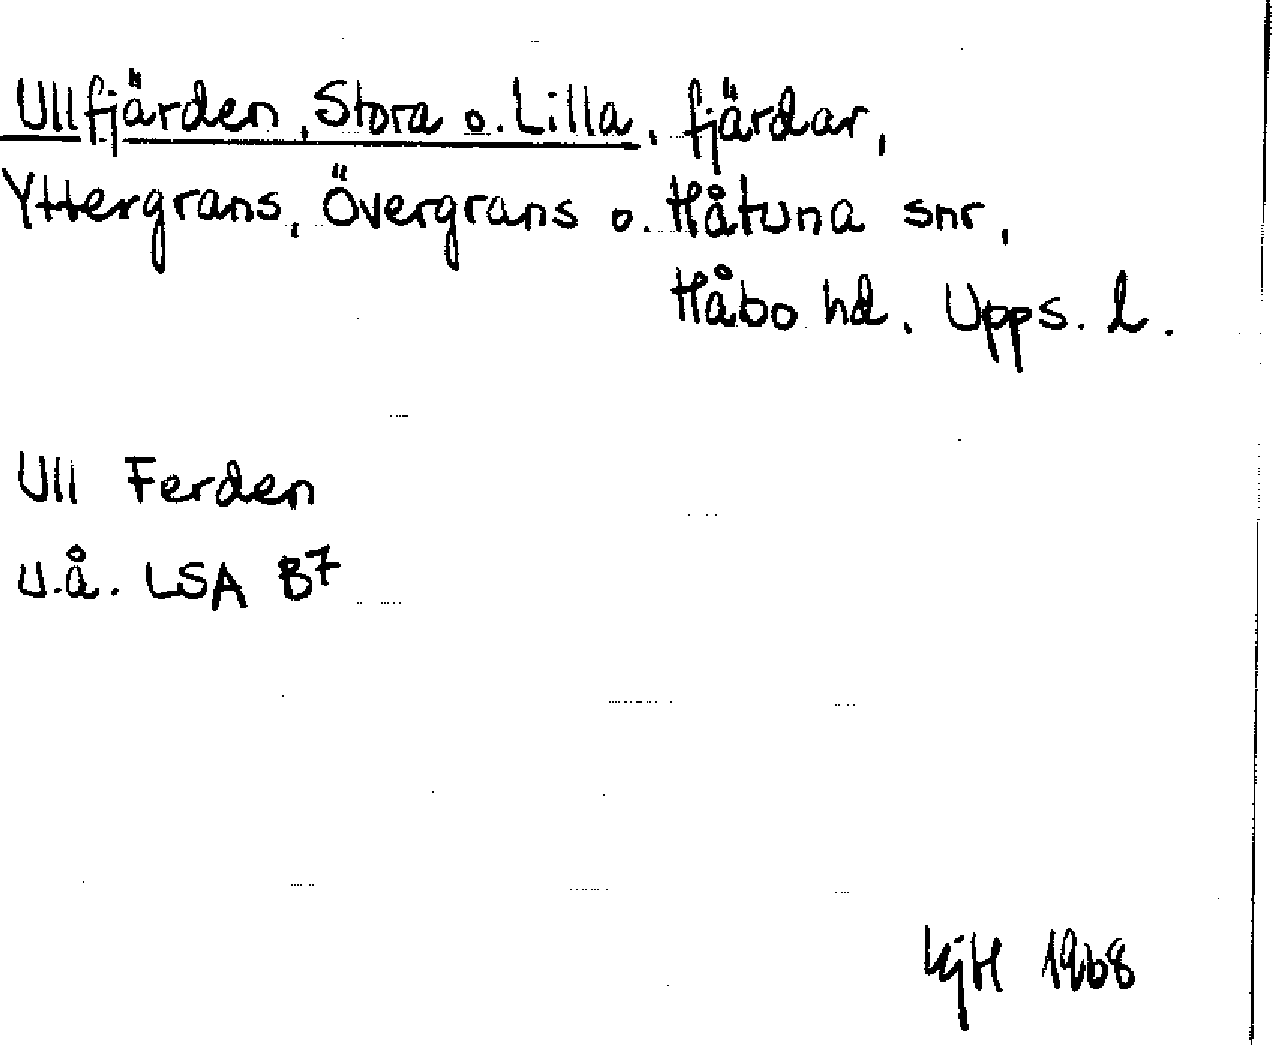 Ullfjärden, Stora o. Lilla, fjärdar,
Yttergrans, Övergrans o. Håtuna snr,
Håbo hd. Upps. l.
Ull Ferden
u.å. LSA B7
KjH 1968